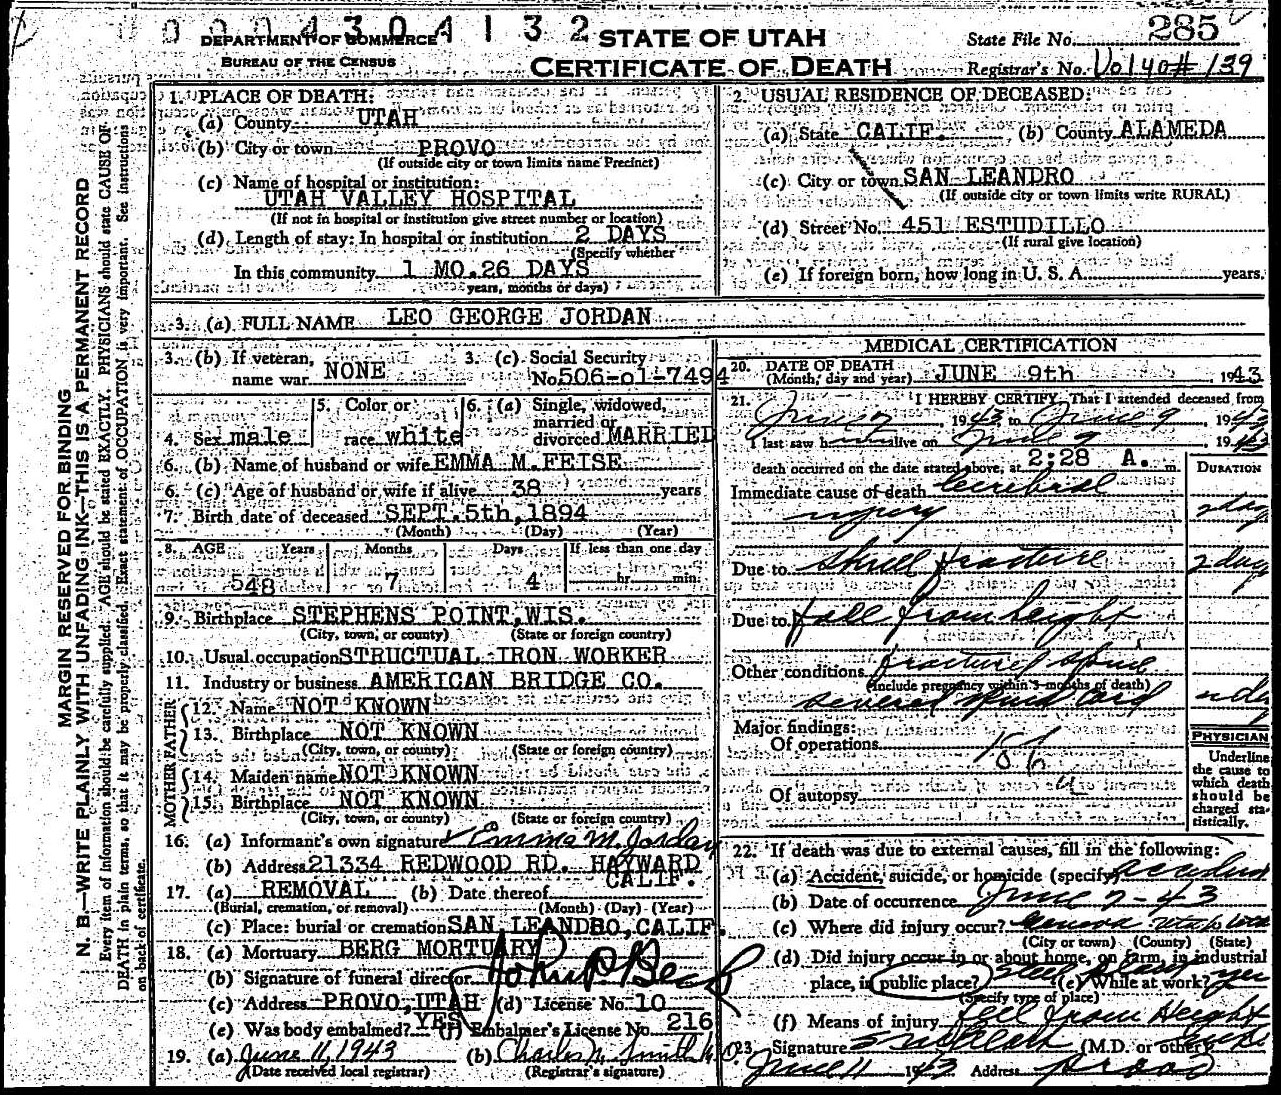 0004304132
DEPARTMENT OF COMMERCE
BUREAU OF THE CENSUS
STATE OF UTAH
CERTIFICATE OF DEATH
State File No. 285
Registrar's No. Vol 40# 139
MARGIN RESERVED FOR BINDING
N. B.—WRITE PLAINLY WITH UNFADING INK—THIS IS A PERMANENT RECORD
Every item of information should be carefully supplied. AGE should be stated EXACTLY. PHYSICIANS should state CAUSE OF
DEATH in plain terms, so that it may be properly classified. Exact statement of OCCUPATION is very important. See instructions
on back of certificate.
1. PLACE OF DEATH:
(a) County UTAH
(b) City or town PROVO
(If outside city or town limits name Precinct)
(c) Name of hospital or institution:
UTAH VALLEY HOSPITAL
(If not in hospital or institution give street number or location)
(d) Length of stay: In hospital or institution 2 DAYS
(Specify whether
In this community 1 MO.26 DAYS
years, months or days)
2. USUAL RESIDENCE OF DECEASED:
(a) State CALIF. (b) County ALAMEDA
(c) City or town SAN LEANDRO
(If outside city or town limits write RURAL)
(d) Street No. 451 ESTUDILLO
(If rural give location)
(e) If foreign born, how long in U. S. A. years.
3. (a) FULL NAME LEO GEORGE JORDAN
3. (b) If veteran, name war NONE
3. (c) Social Security No. 506-01-7494
4. Sex male
5. Color or race white
6. (a) Single, widowed, married or divorced MARRIED
6. (b) Name of husband or wife EMMA M.FEISE
6. (c) Age of husband or wife if alive 38 years
7. Birth date of deceased SEPT.5th,1894
(Month) (Day) (Year)
8. AGE Years Months Days If less than one day
548 7 4 hr. min.
9. Birthplace STEPHENS POINT,WIS.
(City, town, or county) (State or foreign country)
10. Usual occupation STRUCTUAL IRON WORKER
11. Industry or business AMERICAN BRIDGE CO.
FATHER
12. Name NOT KNOWN
13. Birthplace NOT KNOWN
(City, town, or county) (State or foreign country)
MOTHER
14. Maiden name NOT KNOWN
15. Birthplace NOT KNOWN
(City, town, or county) (State or foreign country)
16. (a) Informant's own signature Emma M. Jordan
(b) Address 21334 REDWOOD RD. HAYWARD
CALIF.
17. (a) REMOVAL (b) Date thereof
(Burial, cremation, or removal) (Month) (Day) (Year)
(c) Place: burial or cremation SAN LEANDRO,CALIF.
18. (a) Mortuary BERG MORTUARY
(b) Signature of funeral director
(c) Address PROVO,UTAH (d) License No. 10
(e) Was body embalmed? YES (f) Embalmer's License No. 216
19. (a) June 11, 1943 (b) Charles M. Smith M.D.
(Date received local registrar) (Registrar's signature)
MEDICAL CERTIFICATION
20. DATE OF DEATH
(Month, day and year) JUNE 9th 1943
21. I HEREBY CERTIFY, That I attended deceased from
June 7, 1943, to June 9, 1943
I last saw him alive on June 9, 1943
death occurred on the date stated above, at 2:28 A. m.
DURATION
Immediate cause of death Cerebral
injury 2 day
Due to Skull fracture 2 day
Due to fall from height
Other conditions fractured spine
(Include pregnancy within 3 months of death)
severed spinal cord
Major findings:
Of operations
Of autopsy
PHYSICIAN
Underline the cause to which death should be charged statistically.
22. If death was due to external causes, fill in the following:
(a) Accident, suicide, or homicide (specify) accident
(b) Date of occurrence June 7-43
(c) Where did injury occur? Geneva Utah
(City or town) (County) (State)
(d) Did injury occur in or about home, on farm, in industrial
place, in public place? steel plant (e) While at work? yes
(Specify type of place)
(f) Means of injury fell from Height
23. Signature (M.D. or other)
June 11 1943 Address Provo